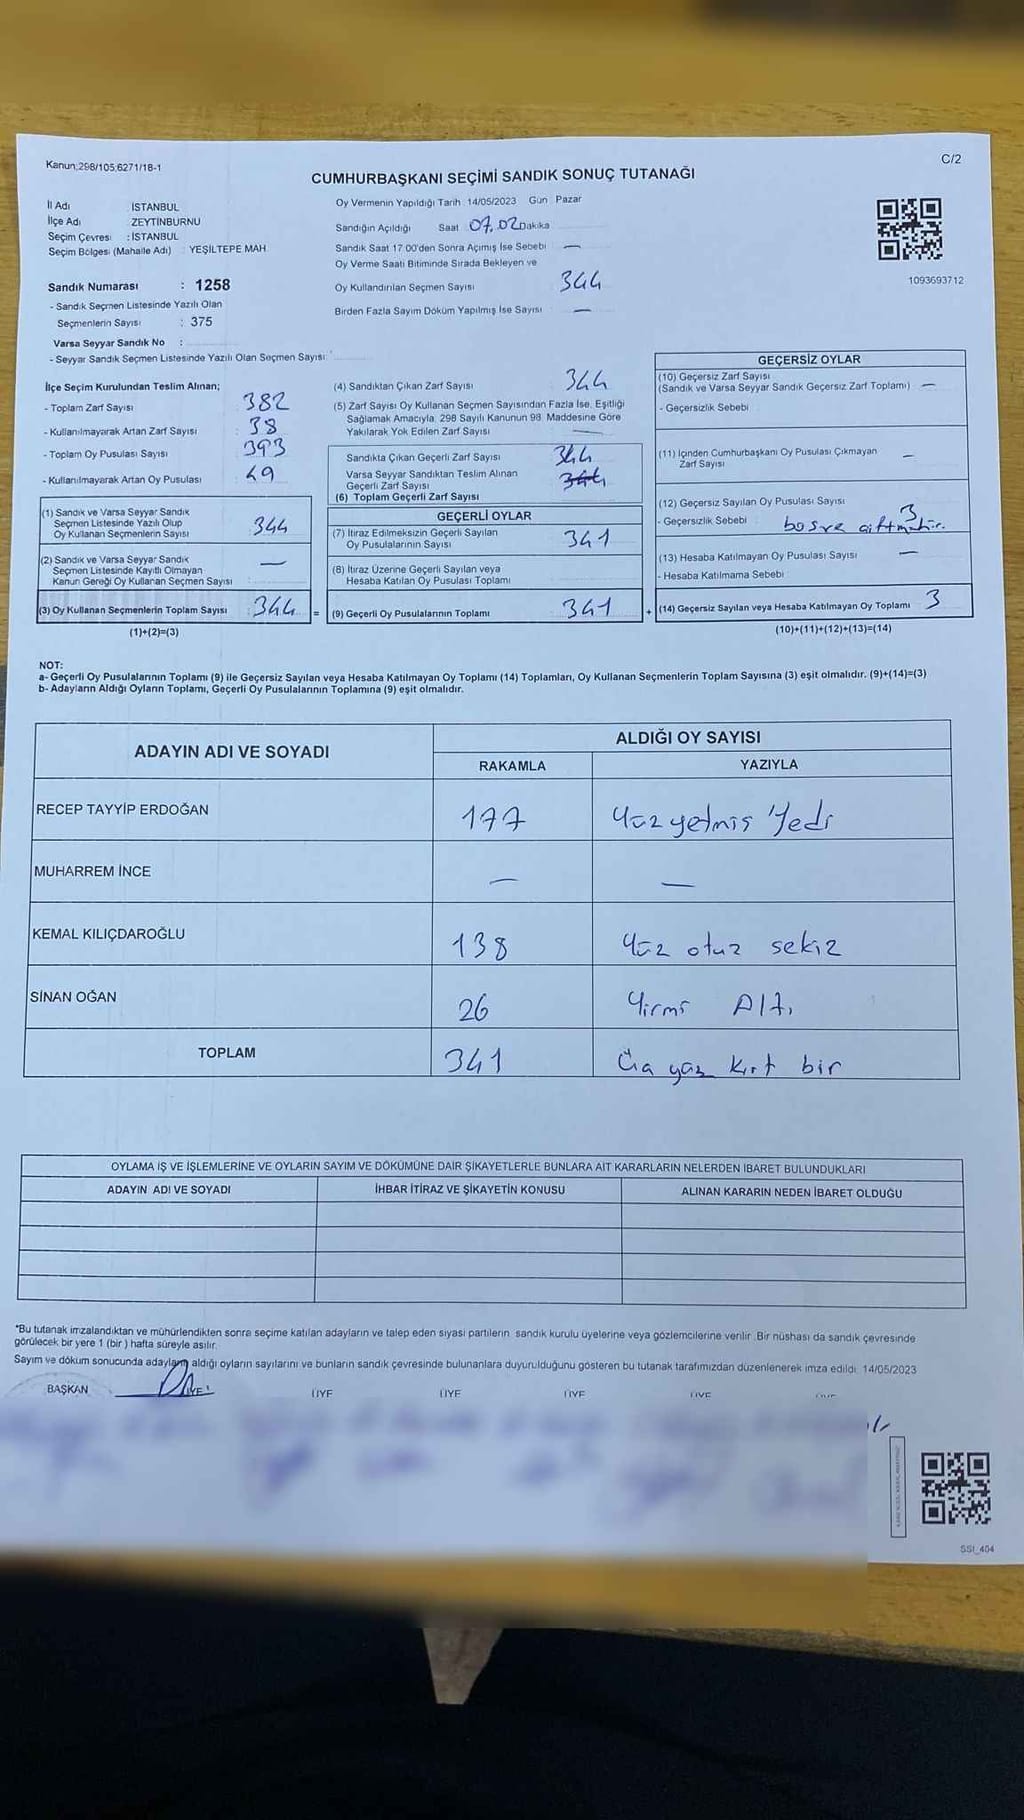 Kanun:298/105,6271/18-1
C/2
CUMHURBAŞKANI SEÇİMİ SANDIK SONUÇ TUTANAĞI
İl Adı İSTANBUL
İlçe Adı ZEYTİNBURNU
Seçim Çevresi : İSTANBUL
Seçim Bölgesi (Mahalle Adı) : YEŞİLTEPE MAH
Sandık Numarası : 1258
- Sandık Seçmen Listesinde Yazılı Olan
Seçmenlerin Sayısı : 375
Varsa Seyyar Sandık No :
- Seyyar Sandık Seçmen Listesinde Yazılı Olan Seçmen Sayısı
Oy Vermenin Yapıldığı Tarih 14/05/2023 Gün Pazar
Sandığın Açıldığı Saat 07,02 Dakika
Sandık Saat 17 00'den Sonra Açımış İse Sebebi —
Oy Verme Saati Bitiminde Sırada Bekleyen ve
Oy Kullandırılan Seçmen Sayısı 344
Birden Fazla Sayım Döküm Yapılmış İse Sayısı —
1093693712
İlçe Seçim Kurulundan Teslim Alınan;
- Toplam Zarf Sayısı 382
- Kullanılmayarak Artan Zarf Sayısı 38
- Toplam Oy Pusulası Sayısı 393
- Kullanılmayarak Artan Oy Pusulası 49
(1) Sandık ve Varsa Seyyar Sandık
Seçmen Listesinde Yazılı Olup
Oy Kullanan Seçmenlerin Sayısı 344
(2) Sandık ve Varsa Seyyar Sandık
Seçmen Listesinde Kayıtlı Olmayan
Kanun Gereği Oy Kullanan Seçmen Sayısı —
(3) Oy Kullanan Seçmenlerin Toplam Sayısı 344 =
(1)+(2)=(3)
(4) Sandıktan Çıkan Zarf Sayısı 344
(5) Zarf Sayısı Oy Kullanan Seçmen Sayısından Fazla İse, Eşitliği
Sağlamak Amacıyla, 298 Sayılı Kanunun 98. Maddesine Göre
Yakılarak Yok Edilen Zarf Sayısı —
Sandıkta Çıkan Geçerli Zarf Sayısı 344
Varsa Seyyar Sandıktan Teslim Alınan
Geçerli Zarf Sayısı 344
(6) Toplam Geçerli Zarf Sayısı
GEÇERLİ OYLAR
(7) İtiraz Edilmeksizin Geçerli Sayılan
Oy Pusulalarının Sayısı 341
(8) İtiraz Üzerine Geçerli Sayılan veya
Hesaba Katılan Oy Pusulası Toplamı
(9) Geçerli Oy Pusulalarının Toplamı 341 +
GEÇERSİZ OYLAR
(10) Geçersiz Zarf Sayısı
(Sandık ve Varsa Seyyar Sandık Geçersiz Zarf Toplamı) —
- Geçersizlik Sebebi
(11) İçinden Cumhurbaşkanı Oy Pusulası Çıkmayan
Zarf Sayısı —
(12) Geçersiz Sayılan Oy Pusulası Sayısı 3
- Geçersizlik Sebebi
(13) Hesaba Katılmayan Oy Pusulası Sayısı —
- Hesaba Katılmama Sebebi
(14) Geçersiz Sayılan veya Hesaba Katılmayan Oy Toplamı 3
(10)+(11)+(12)+(13)=(14)
NOT:
a- Geçerli Oy Pusulalarının Toplamı (9) ile Geçersiz Sayılan veya Hesaba Katılmayan Oy Toplamı (14) Toplamları, Oy Kullanan Seçmenlerin Toplam Sayısına (3) eşit olmalıdır. (9)+(14)=(3)
b- Adayların Aldığı Oyların Toplamı, Geçerli Oy Pusulalarının Toplamına (9) eşit olmalıdır.
ADAYIN ADI VE SOYADI ALDIĞI OY SAYISI
RAKAMLA YAZIYLA
RECEP TAYYİP ERDOĞAN 177 Yüz yetmiş Yedi
MUHARREM İNCE — —
KEMAL KILIÇDAROĞLU 138 Yüz otuz sekiz
SİNAN OĞAN 26 Yirmi Altı
TOPLAM 341 Üç yüz kırk bir
OYLAMA İŞ VE İŞLEMLERİNE VE OYLARIN SAYIM VE DÖKÜMÜNE DAİR ŞİKAYETLERLE BUNLARA AİT KARARLARIN NELERDEN İBARET BULUNDUKLARI
ADAYIN ADI VE SOYADI İHBAR İTİRAZ VE ŞİKAYETİN KONUSU ALINAN KARARIN NEDEN İBARET OLDUĞU
*Bu tutanak imzalandıktan ve mühürlendikten sonra seçime katılan adayların ve talep eden siyasi partilerin sandık kurulu üyelerine veya gözlemcilerine verilir. Bir nüshası da sandık çevresinde
görülecek bir yere 1 (bir) hafta süreyle asılır.
Sayım ve döküm sonucunda adayların aldığı oyların sayılarını ve bunların sandık çevresinde bulunanlara duyurulduğunu gösteren bu tutanak tarafımızdan düzenlenerek imza edildi. 14/05/2023
BAŞKAN ÜYE ÜYE ÜYE ÜYE ÜYE ÜYE
SSI_404